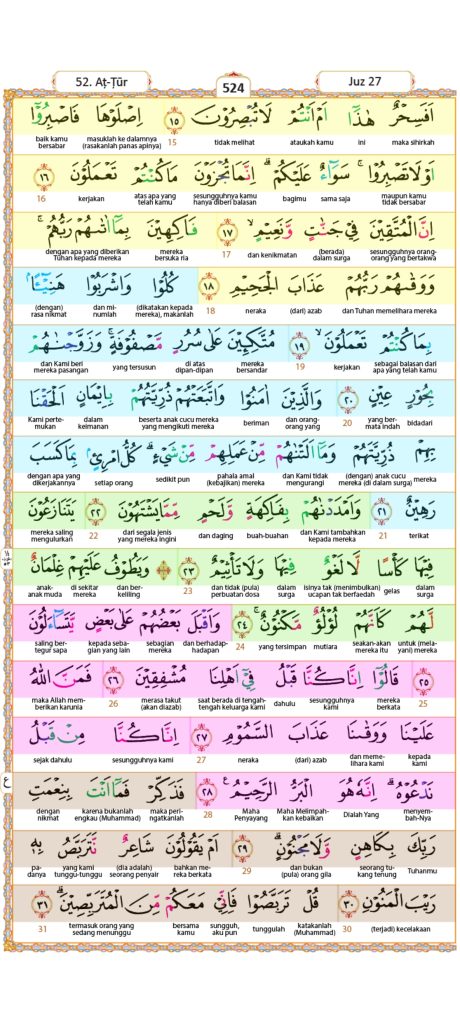 52. Aṭ-Ṭūr
524
Juz 27
اَفَسِحْرٌ هٰذَآ اَمْ اَنْتُمْ لَا تُبْصِرُوْنَ ١٥ اِصْلَوْهَا فَاصْبِرُوْٓا
maka sihirkah ini ataukah kamu tidak melihat 15 masuklah ke dalamnya (rasakanlah panas apinya) baik kamu bersabar
اَوْ لَا تَصْبِرُوْاۚ سَوَاۤءٌ عَلَيْكُمْۗ اِنَّمَا تُجْزَوْنَ مَا كُنْتُمْ تَعْمَلُوْنَ ١٦
maupun kamu tidak bersabar sama saja bagimu sesungguhnya kamu hanya diberi balasan atas apa yang telah kamu kerjakan 16
اِنَّ الْمُتَّقِيْنَ فِيْ جَنّٰتٍ وَّنَعِيْمٍۙ ١٧ فَاكِهِيْنَ بِمَآ اٰتٰىهُمْ رَبُّهُمْۚ
sesungguhnya orang-orang yang bertakwa (berada) dalam surga dan kenikmatan 17 mereka bersuka ria dengan apa yang diberikan Tuhan kepada mereka
وَوَقٰىهُمْ رَبُّهُمْ عَذَابَ الْجَحِيْمِ ١٨ كُلُوْا وَاشْرَبُوْا هَنِيْۤـًٔا
dan Tuhan memelihara mereka (dari) azab neraka 18 (dikatakan kepada mereka), makanlah dan minumlah (dengan) rasa nikmat
بِمَا كُنْتُمْ تَعْمَلُوْنَۙ ١٩ مُتَّكِـِٕيْنَ عَلٰى سُرُرٍ مَّصْفُوْفَةٍۚ وَزَوَّجْنٰهُمْ
sebagai balasan dari apa yang telah kamu kerjakan 19 mereka bersandar di atas dipan-dipan yang tersusun dan Kami beri mereka pasangan
بِحُوْرٍ عِيْنٍ ٢٠ وَالَّذِيْنَ اٰمَنُوْا وَاتَّبَعَتْهُمْ ذُرِّيَّتُهُمْ بِاِيْمَانٍ اَلْحَقْنَا
bidadari yang bermata indah 20 dan orang-orang yang beriman beserta anak cucu mereka yang mengikuti mereka dalam keimanan Kami pertemukan
بِهِمْ ذُرِّيَّتَهُمْ وَمَآ اَلَتْنٰهُمْ مِّنْ عَمَلِهِمْ مِّنْ شَيْءٍۗ كُلُّ امْرِئٍۢ بِمَا كَسَبَ
(dengan) anak cucu mereka (di dalam surga) dan Kami tidak mengurangi pahala amal (kebajikan) mereka sedikit pun setiap orang dengan apa yang dikerjakannya
رَهِيْنٌ ٢١ وَاَمْدَدْنٰهُمْ بِفَاكِهَةٍ وَّلَحْمٍ مِّمَّا يَشْتَهُوْنَ ٢٢ يَتَنَازَعُوْنَ
terikat 21 dan Kami tambahkan kepada mereka buah-buahan dan daging dari segala jenis yang mereka ingini 22 mereka saling mengulurkan
فِيْهَا كَأْسًا لَّا لَغْوٌ فِيْهَا وَلَا تَأْثِيْمٌ ٢٣ ۞ وَيَطُوْفُ عَلَيْهِمْ غِلْمَانٌ
dalam surga gelas isinya tak (menimbulkan) ucapan tak berfaedah dalam surga dan tidak (pula) perbuatan dosa 23 dan berkeliling di sekitar mereka anak-anak muda
لَّهُمْ كَاَنَّهُمْ لُؤْلُؤٌ مَّكْنُوْنٌۚ ٢٤ وَاَقْبَلَ بَعْضُهُمْ عَلٰى بَعْضٍ يَّتَسَاۤءَلُوْنَ
untuk (melayani) mereka seakan-akan mereka itu mutiara yang tersimpan 24 dan berhadap-hadapan sebagian mereka kepada sebagian yang lain saling bertegur sapa
٢٥ قَالُوْٓا اِنَّا كُنَّا قَبْلُ فِيْٓ اَهْلِنَا مُشْفِقِيْنَ ٢٦ فَمَنَّ اللّٰهُ
25 mereka berkata sesungguhnya kami dahulu saat berada di tengah-tengah keluarga kami merasa takut (akan diazab) 26 maka Allah memberikan karunia
عَلَيْنَا وَوَقٰىنَا عَذَابَ السَّمُوْمِ ٢٧ اِنَّا كُنَّا مِنْ قَبْلُ
kepada kami dan memelihara kami (dari) azab neraka 27 sesungguhnya kami sejak dahulu
نَدْعُوْهُۗ اِنَّهٗ هُوَ الْبَرُّ الرَّحِيْمُ ࣖ ٢٨ فَذَكِّرْ فَمَآ اَنْتَ بِنِعْمَتِ
menyembah-Nya Dialah Yang Maha Melimpahkan kebaikan Maha Penyayang 28 maka peringatkanlah karena bukanlah engkau (Muhammad) dengan nikmat
ع
رَبِّكَ بِكَاهِنٍ وَّلَا مَجْنُوْنٍۗ ٢٩ اَمْ يَقُوْلُوْنَ شَاعِرٌ نَّتَرَبَّصُ بِهٖ
Tuhanmu seorang tukang tenung dan bukan (pula) orang gila 29 bahkan mereka berkata (dia adalah) seorang penyair yang kami tunggu-tunggu padanya
رَيْبَ الْمَنُوْنِ ٣٠ قُلْ تَرَبَّصُوْا فَاِنِّيْ مَعَكُمْ مِّنَ الْمُتَرَبِّصِيْنَۗ ٣١
(terjadi) kecelakaan 30 katakanlah (Muhammad) tunggulah sungguh, aku pun bersama kamu termasuk orang yang sedang menunggu 31